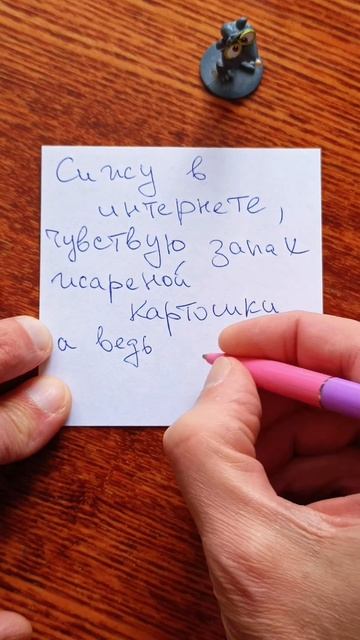 Сижу в
интернете,
чувствую запах
жареной
картошки
а ведь